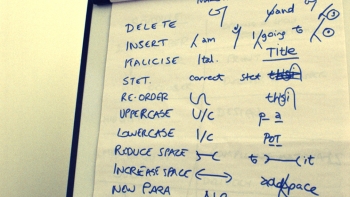 DELETE and
INSERT / am / going to
ITALICISE Ital. Title
STET. correct stet
RE-ORDER thsi
UPPERCASE U/C p a
LOWERCASE l/c POT
REDUCE SPACE to it
INCREASE SPACE addspace
NEW PARA